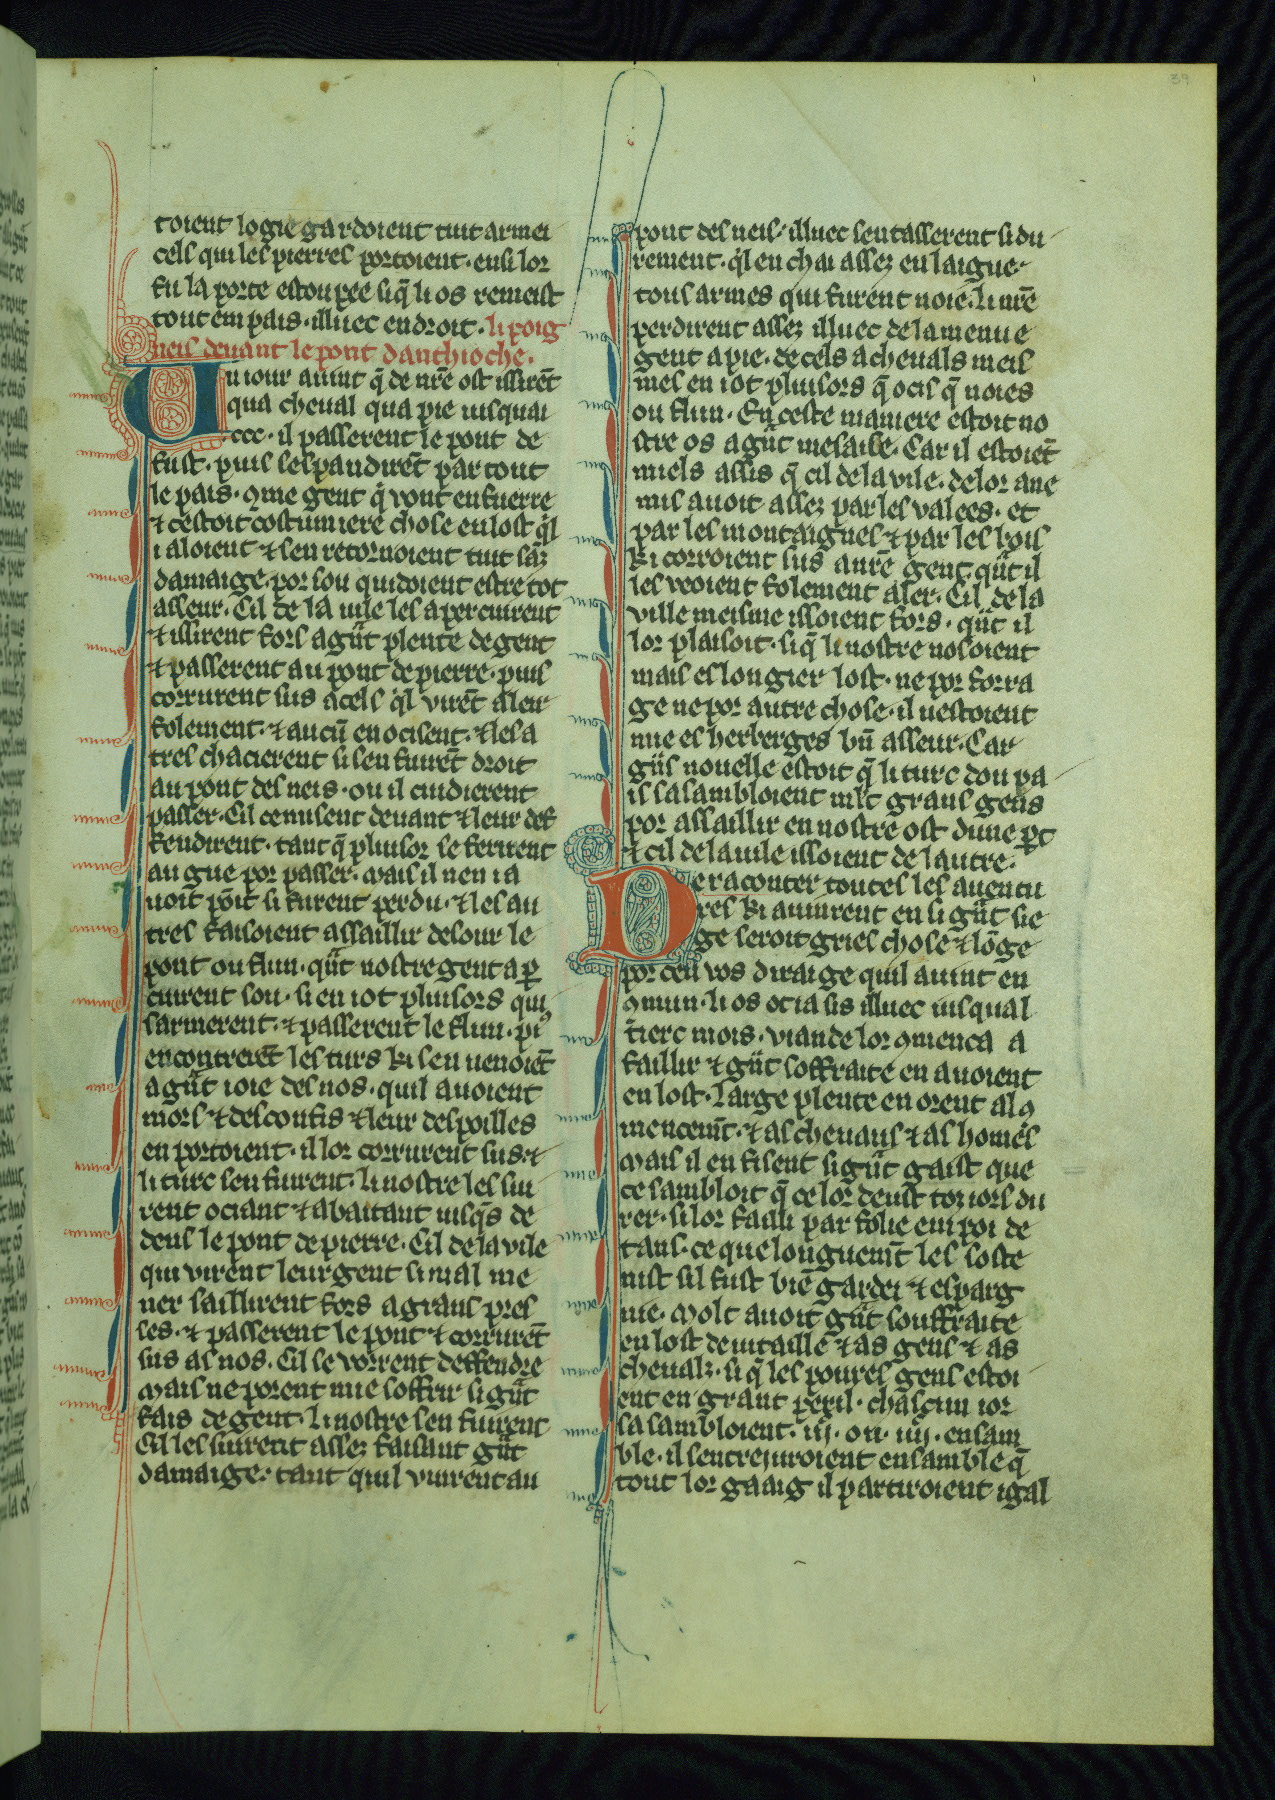 39
toient logie gardoient tuit armei
cels qui les pierres portoient· ensi lor
fu la porte estoupee siq̃ li os remeist
tout em pais· illuec endroit· li poig
neis deuant le pont danthioche·
Un iour auint q̃ de nr̃e ost issirẽt
qua cheual qua pie iusquai
ccc· il passerent le pont de
fust· puis sespandirẽt par tout
le pais· ꝯme gent q̃ vont en fuerre
⁊ cestoit costumiere chose en lost q̃l
i aloient ⁊ sen retornoient tuit sãz
damaige· por son quidoient estre tot
asseur· Cil de la uile les aperciurent
⁊ issirent fors a gũt plente de gent
⁊ passerent au pont de pierre· puis
corrurent sus a cels q̃l virẽt aleir
folement· ⁊ aucũ en ocisent· ⁊ les a
tres chacierent si sen fuirẽt droit
au pont des neis· ou il cuidierent
passer· Cil ce misent deuant ⁊ leur def
fendirent· tant q̃ pluisor se ferirent
au gue por passer· mais il nen i a
uoit põit si furent perdu· ⁊ les au
tres faisoient assaillir desour le
pont ou flun· qũt nostre gent aꝑ
ciurent son· si en iot pluisors qui
sarmerent· ⁊ passerent le flun· pꝰ
encontrerẽt les turs ki sen uenoiẽt
a gũt ioie des nos· quil auoient
mors ⁊ desconfis ⁊ leur despoilles
en portoient· il lor corrurent sus· ⁊
li turc sen fuirent· li nostre les sui
rent ociant ⁊ abatant iusq̃s de
deus le pont de pierre· Cil de la vile
qui virent leur gent si mal me
ner saillirent fors a grans pres
ses· ⁊ passerent le pont ⁊ corrurẽt
sus as nos· Cil se vorrent deffendre
mais ne porent mie soffrir si gũt
fais de gent· li nostre sen fuirent
Cil les suirent assez faisant gũt
damaige· tant quil vinrent au
pont des neis· illuec sentasserent si du
rement· q̃l en chai assez en laigue·
tous armes qui furent noie· li nr̃e
perdirent assez illuec de la menue
gent a pie· de cels a cheuals meis
mes en iot pluisors q̃ ocis q̃ noies
ou flun· En ceste maniere estoit no
stre os a gũt mesaise· Car il estoiẽt
miels assis q̃ cil de la vile· de lor ane
mis auoit assez par les valees· et
par les montaignes ⁊ par les bois
ki corroient sus a nr̃e gent qũt il
les veoient folement aler· Cil de la
ville meisme issoient fors· qũt il
lor plaisoit· siq̃ li nostre nosoient
mais eslongier lost· ne por forra
ge ne por autre chose· il nestoient
mie es herberges bñ asseur· Car
gñs nouelle estoit q̃ li turc dou pa
is sasambloient m̃lt grans gens
por assaillir en nostre ost dune ꝑt
⁊ cil de la uile issoient de lautre·
De raconter toutes les auentu
res ki auinrent en si gũt sie
ge seroit gries chose ⁊ lõge
por ceu vos diraige quil auint en
ꝯmun· li os ot ia sis illuec iusqual
tierc mois· viande lor ꝯmenca a
faillir ⁊ gũt soffraite en auoient
en lost· large plente en orent al ꝯ
mencemt̃· ⁊ as cheuaus ⁊ as homẽs
mais il en fisent si gũt gaist que
ce sambloit q̃ ce lor deust toz iors du
rer· si lor failli par folie en poi de
tans· ce que longuemt̃ les soste
nist sil fust biẽ gardei ⁊ esparg
nie· Molt auoit gũt souffraite
en lost de uitaille ⁊ as gens ⁊ as
cheuals· siq̃ les poures gens estoi
ent en grant peril· chascun ior
sasambloient· iij· ou· iiij· ensam
ble· il sentreiuroient ensamble q̃
tout lor gaaig il partiroient igal